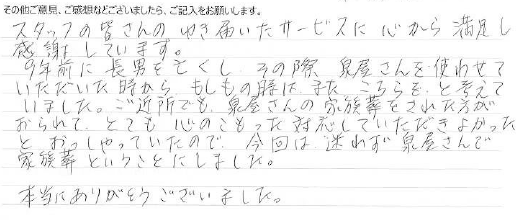 その他ご意見、ご感想などございましたら、ご記入をお願いします。
スタッフの皆さんのゆき届いたサービスに心から満足し
感謝しています。
9年前に長男を亡くし、その際、泉屋さんを使わせて
いただいた時から、もしもの時は、また、こちらを、と考えて
いました。ご近所でも、泉屋さんの家族葬をされた方が
おられて、とても心のこもった対応していただきよかった
とおっしゃっていたので、今回は迷わず泉屋さんで
家族葬ということにしました。
本当にありがとうございました。